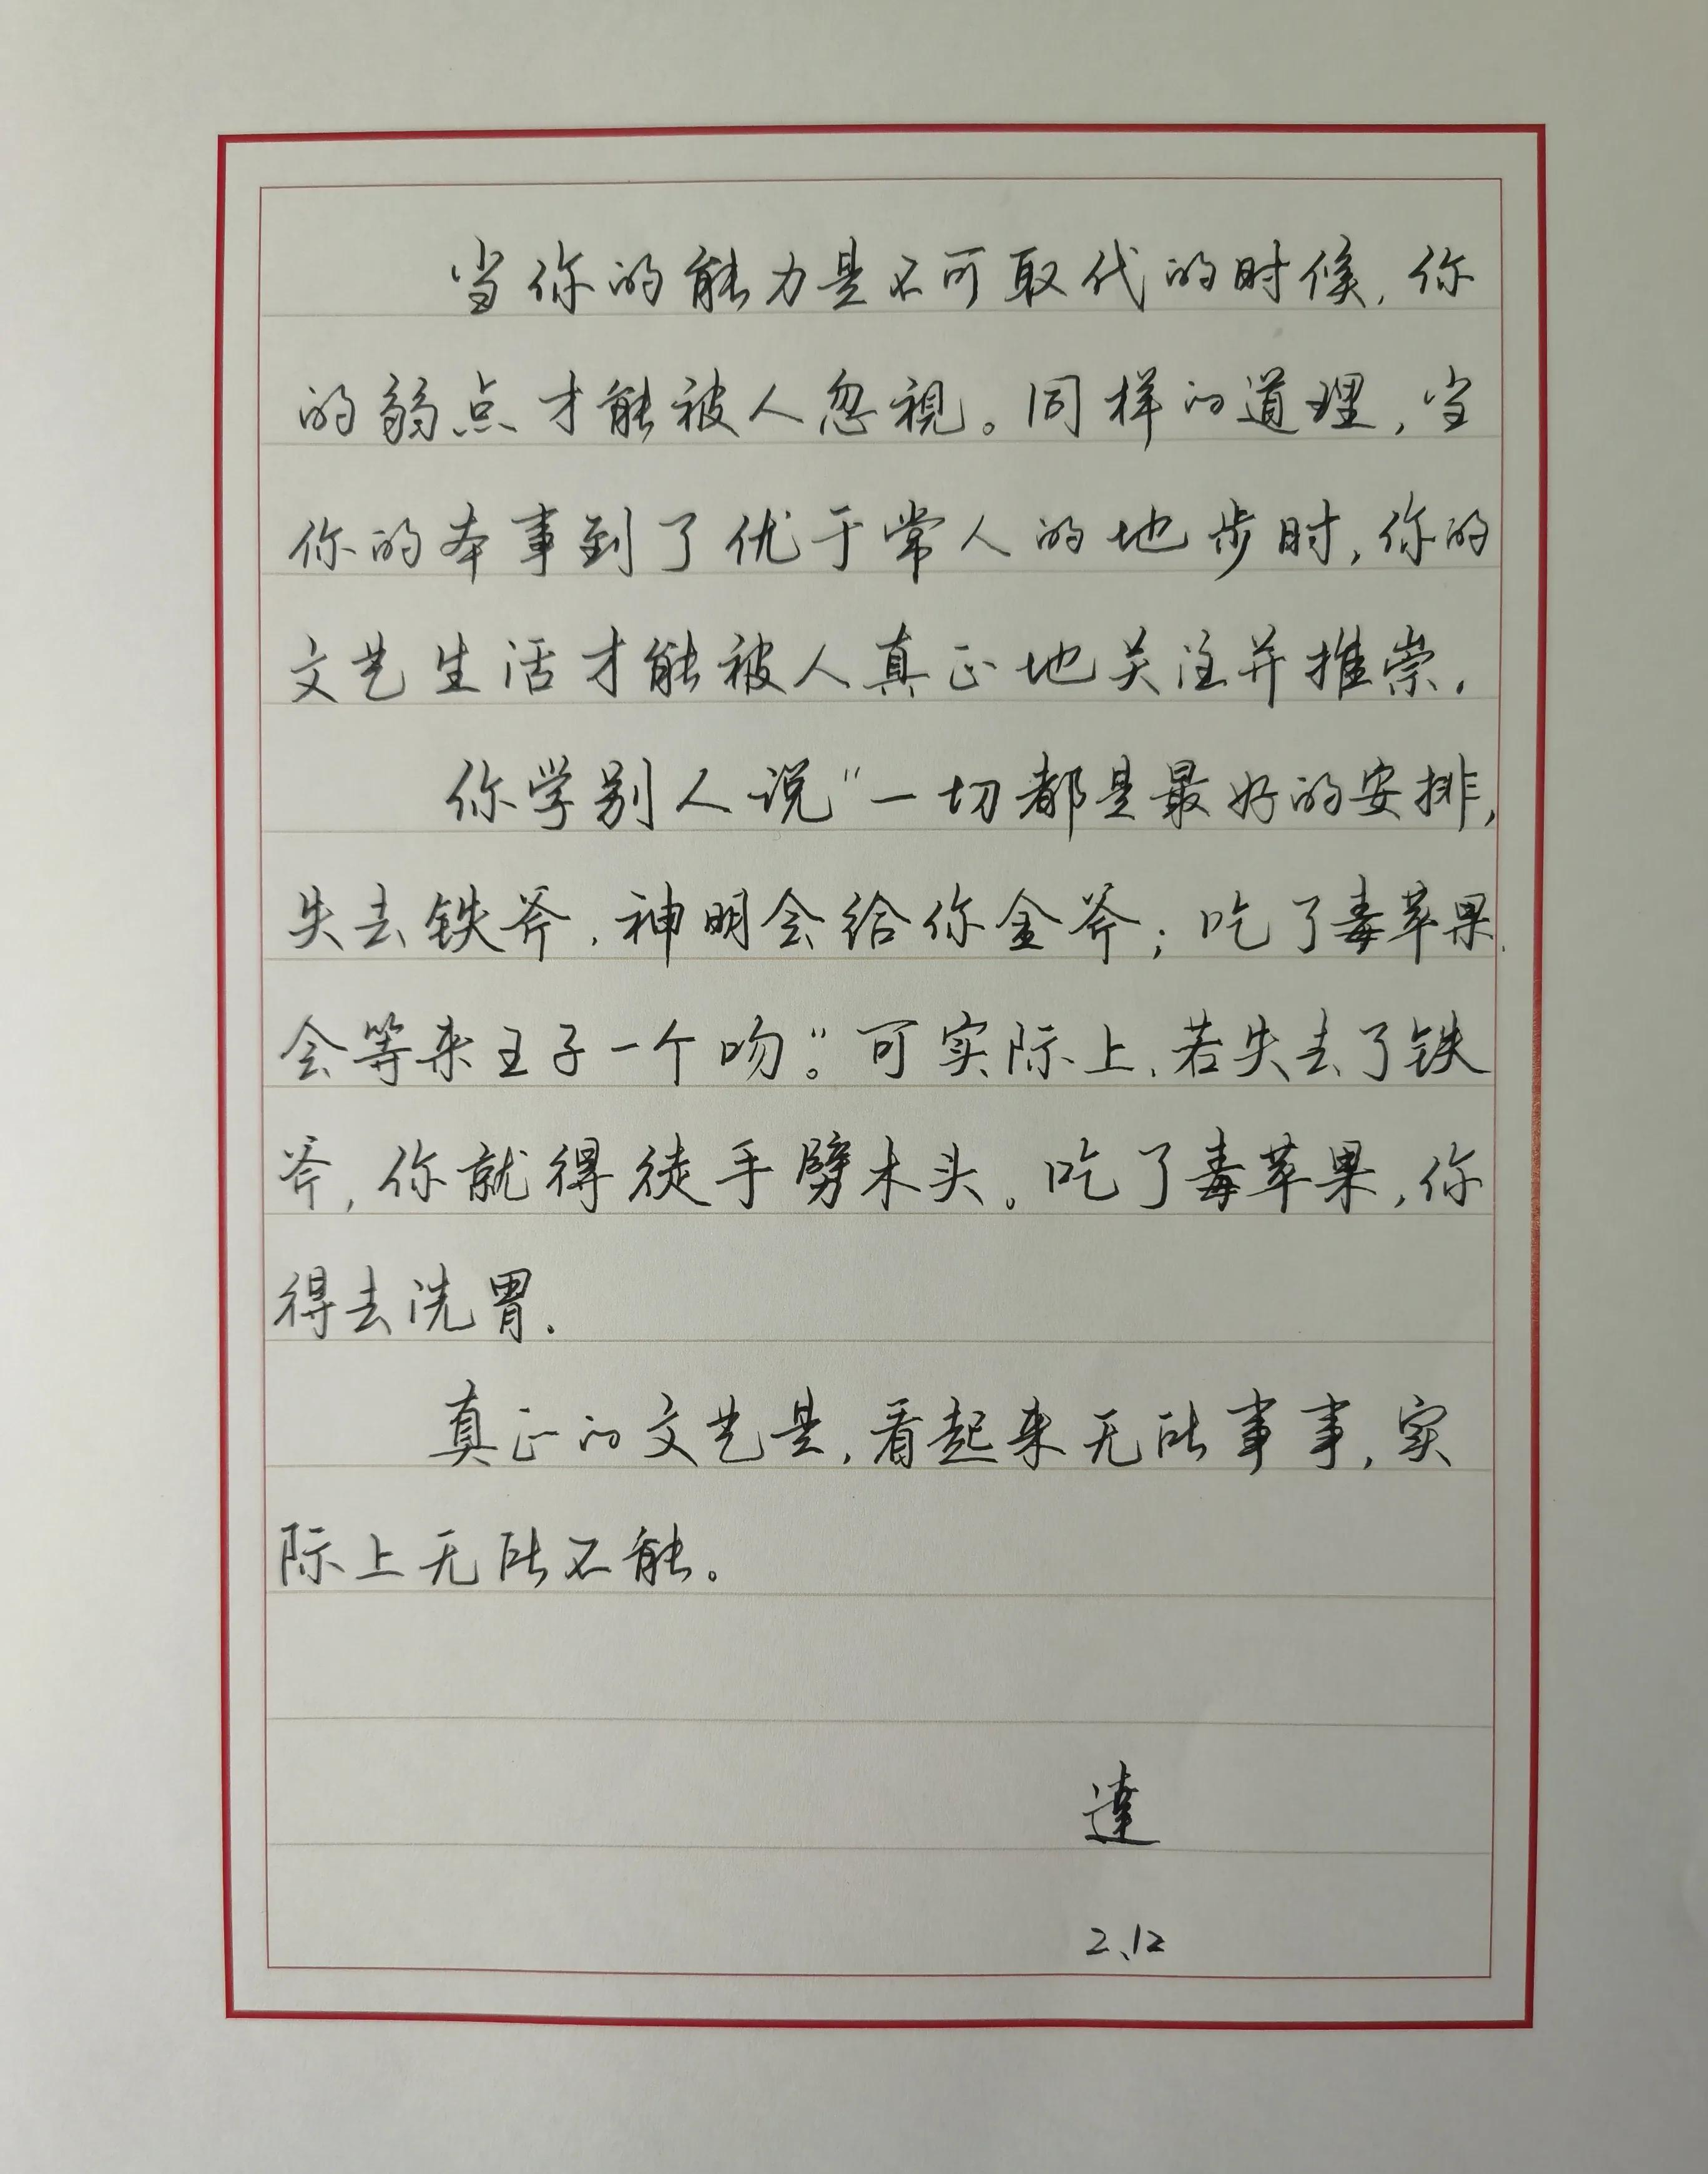 当你的能力是不可取代的时候，你
的弱点才能被人忽视。同样的道理，当
你的本事到了优于常人的地步时，你的
文艺生活才能被人真正地关注并推崇.
你学别人说"一切都是最好的安排，
失去铁斧，神明会给你金斧；吃了毒苹果，
会等来王子一个吻。"可实际上，若失去了铁
斧，你就得徒手劈木头。吃了毒苹果，你
得去洗胃.
真正的文艺是，看起来无所事事，实
际上无所不能。
達
2、12